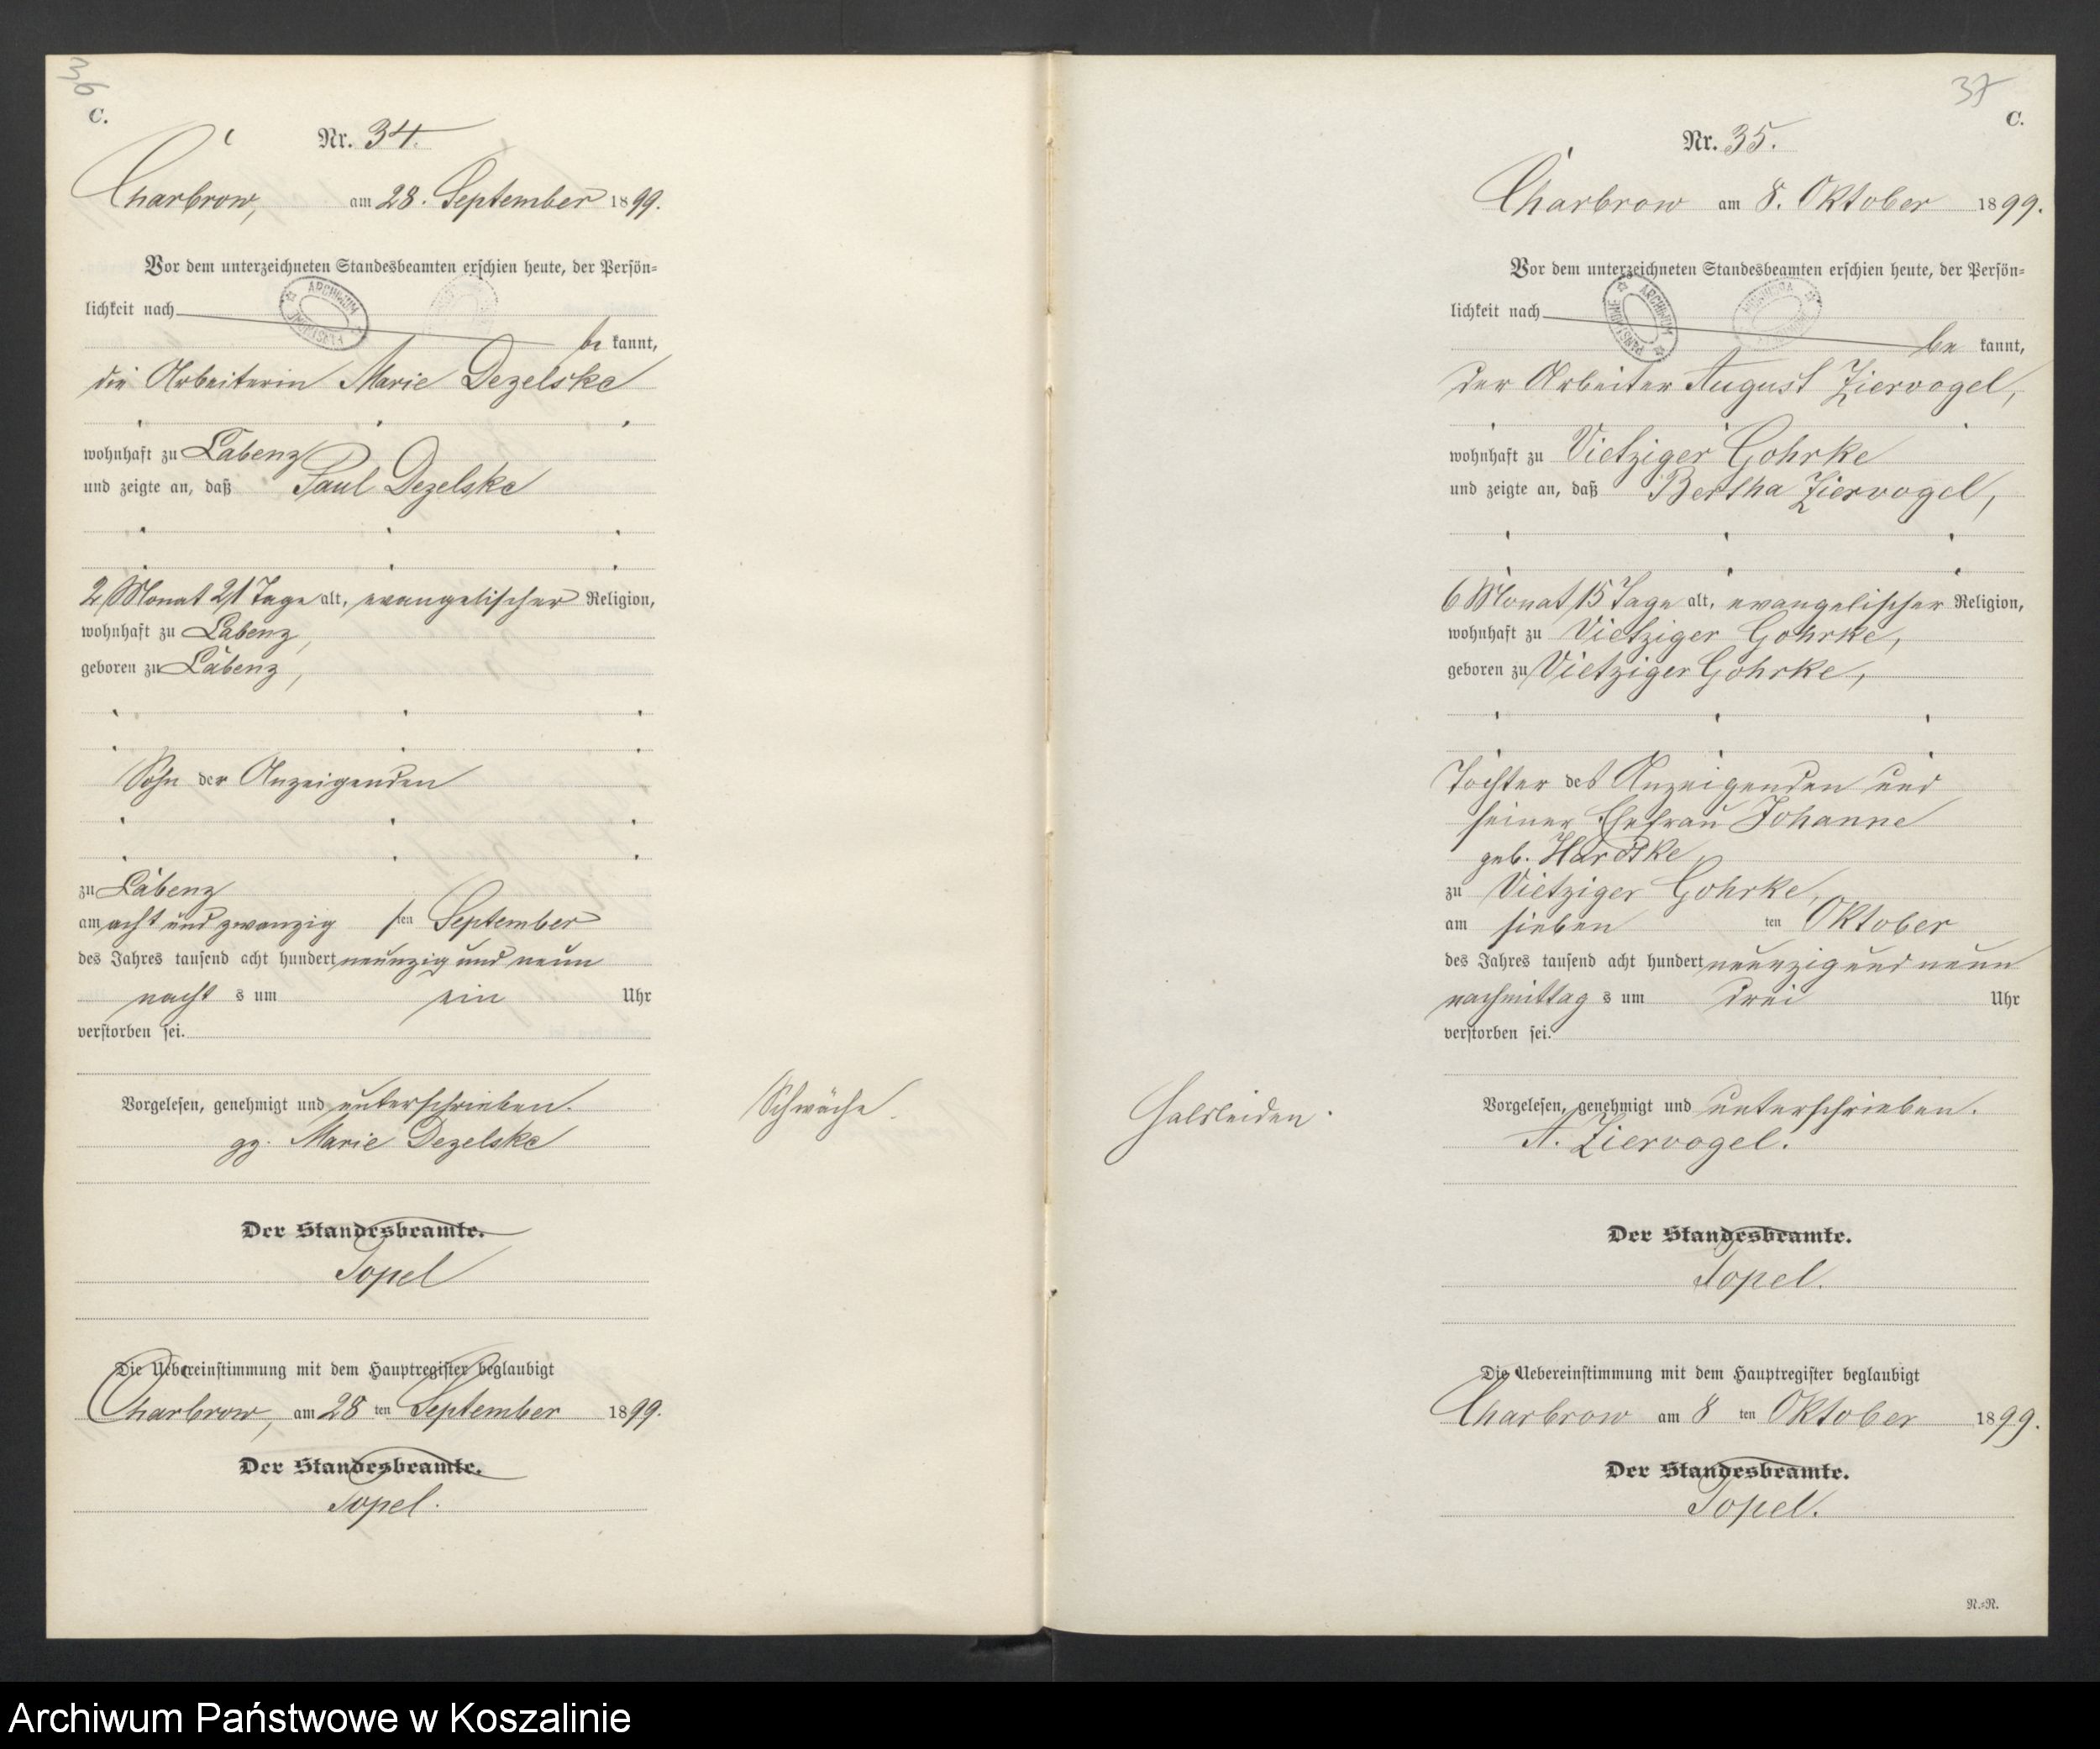 36
C.
Nr. 34.
Charbrow, am 28. September 1899.
Vor dem unterzeichneten Standesbeamten erschien heute, der Persön-
lichkeit nach
be kannt,
die Arbeiterin Marie Dezelske
wohnhaft zu Labenz
und zeigte an, daß Paul Dezelske
2 Monat 21 Tage alt, evangelischer Religion,
wohnhaft zu Labenz,
geboren zu Labenz,
Sohn der Anzeigenden
zu Labenz
am acht und zwanzig sten September
des Jahres tausend acht hundert neunzig und neun
nacht s um ein Uhr
verstorben sei.
Vorgelesen, genehmigt und unterschrieben.
gz. Marie Dezelske
Der Standesbeamte.
Topel
Die Uebereinstimmung mit dem Hauptregister beglaubigt
Charbrow, am 28 ten September 1899.
Der Standesbeamte.
Topel.
Schwäche.
37
C.
Nr. 35.
Charbrow am 8. Oktober 1899.
Vor dem unterzeichneten Standesbeamten erschien heute, der Persön-
lichkeit nach
be kannt,
der Arbeiter August Ziervogel,
wohnhaft zu Vietziger Gohrke
und zeigte an, daß Bertha Ziervogel,
6 Monat 15 Tage alt, evangelischer Religion,
wohnhaft zu Vietziger Gohrke,
geboren zu Vietziger Gohrke,
Tochter des Anzeigenden und
seiner Ehefrau Johanne
geb.
zu Vietziger Gohrke,
am sieben ten Oktober
des Jahres tausend acht hundert neunzig und neun
nachmittag s um drei Uhr
verstorben sei.
Halsleiden.
Vorgelesen, genehmigt und unterschrieben.
A. Ziervogel.
Der Standesbeamte.
Topel.
Die Uebereinstimmung mit dem Hauptregister beglaubigt
Charbrow am 8 ten Oktober 1899.
Der Standesbeamte.
Topel.
N.=N.
Archiwum Państwowe w Koszalinie